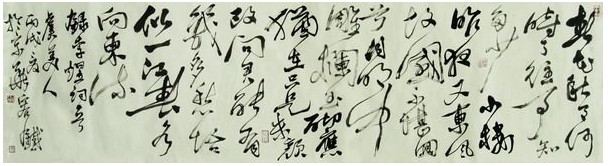 春花秋月何
時了往事知
多少小樓
昨夜又東風
故國不堪回
首月明中
雕欄玉砌應
猶在只是朱顏
改問君能有
幾多愁恰
似一江春水
向東流
錄李煜詞
虞美人
丙戌夏
於京華容鐵